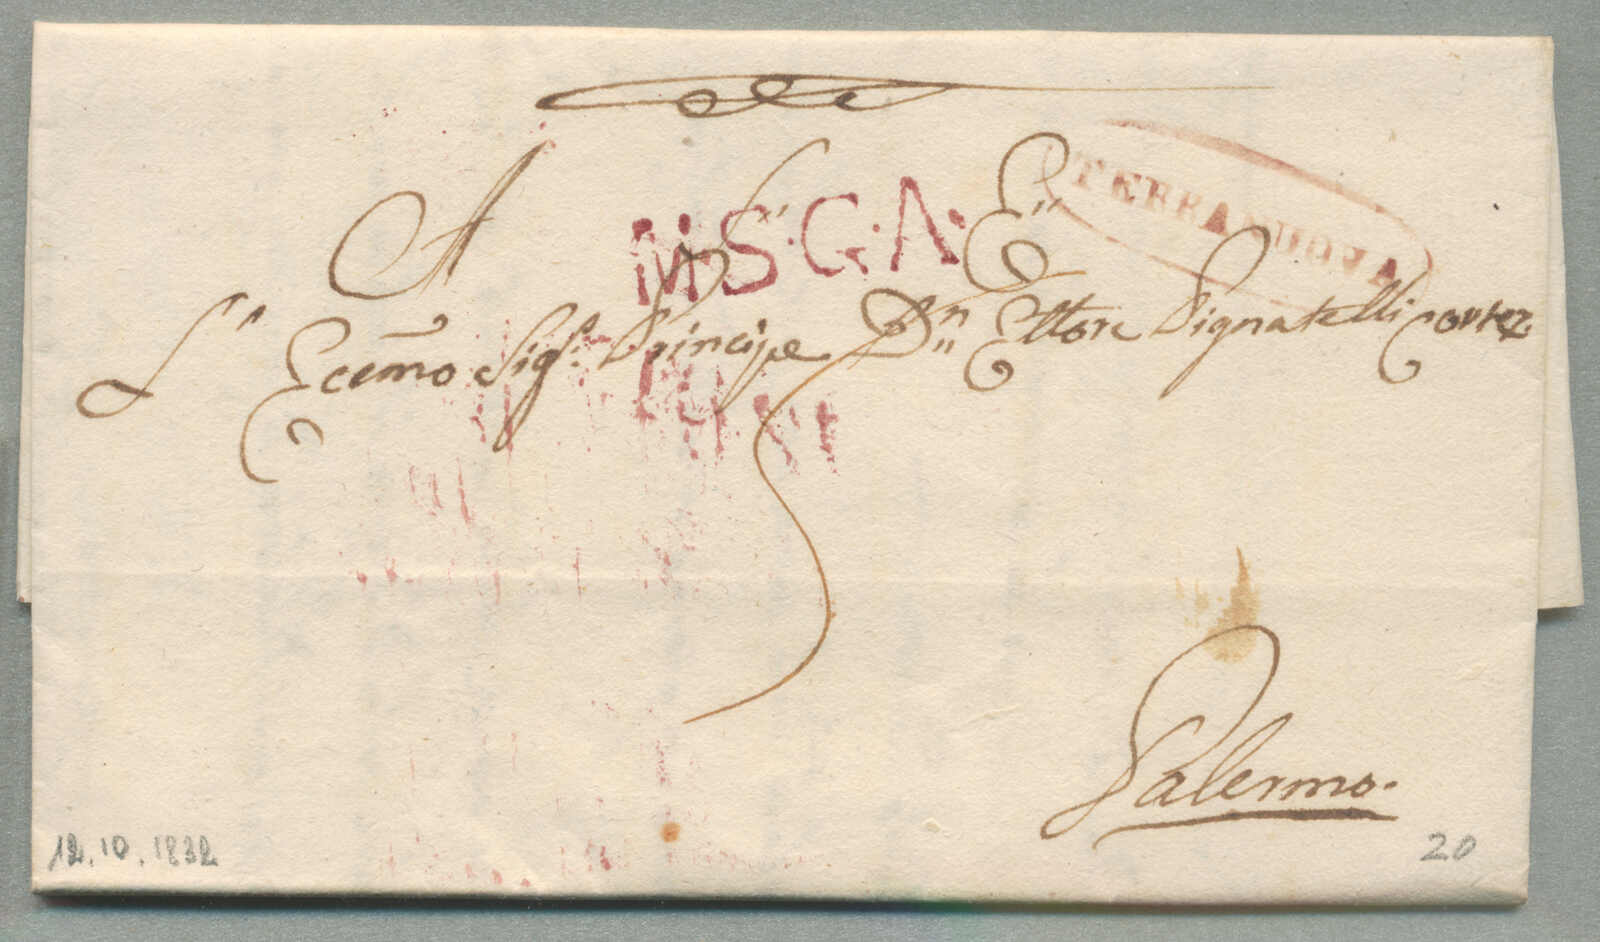 A S.. E..
M.S.G.A.
TERRANUOVA
L'' Eccmo Sigr. Principe Dn.. Ettore Pignatelli Cortez
Palermo.
12.10.1832
20